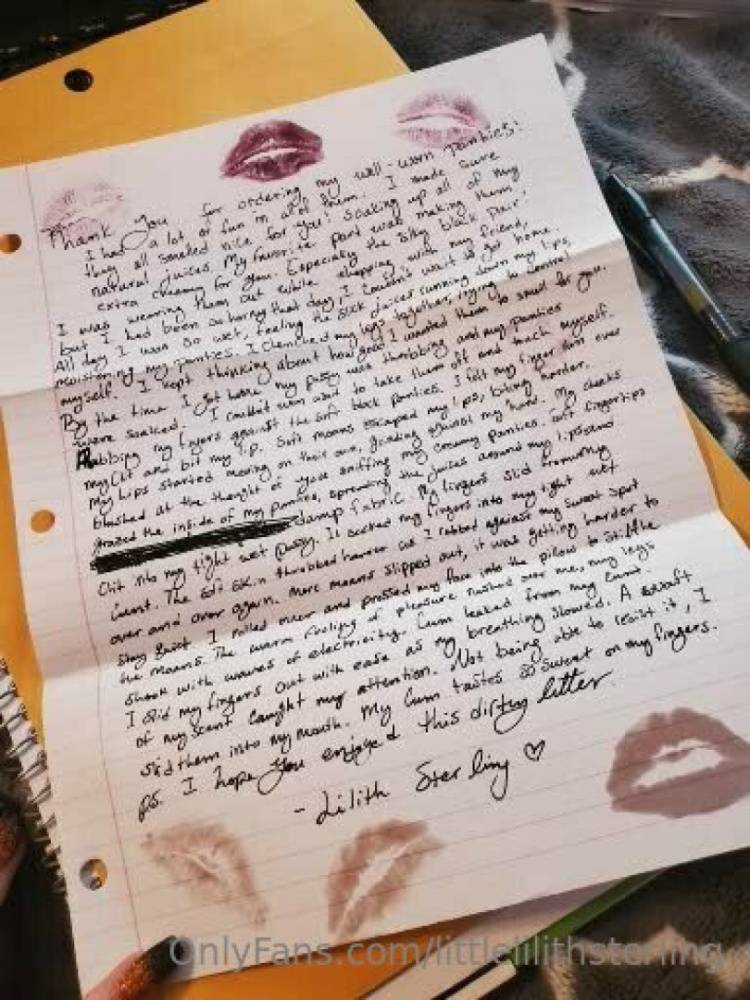 Thank you for ordering my well-worn panties!
I had a lot of fun in all of them. I made sure
they all smelled nice for you! Soaking up all of my
natural juices. My favorite part was making them
extra creamy for you. Especially the silky black pair!
I was wearing them out while shopping with my friend,
but I had been so horny that day, I couldn't wait to get home.
All day I was so wet, feeling the slick juices running down my lips,
moistening my panties. I clenched my legs together, trying to control
myself. I kept thinking about how good I wanted them to smell for you.
By the time I got home my pussy was throbbing and my panties
were soaked. I couldn't wait to take them off and touch myself.
Rubbing my fingers against the soft black panties. I felt my finger over
my clit and bit my lip. Soft moans escaped my lips, biting harder.
My hips started moving on their own, grinding against my hand. My cheeks
blushed at the thought of you sniffing my creamy panties. Soft fingertips
grazed the inside of my panties, spreading the juices around my lips and
damp fabric. My fingers slid from my
clit into my tight wet pussy. It sucked my fingers into my tight wet
cunt. The soft skin throbbed harder as I rubbed against my sweet spot
over and over again. More moans slipped out, it was getting harder to
stay quiet. I rolled over and pressed my face into the pillow to stifle
the moans. The warm feeling of pleasure rushed over me, my legs
shook with waves of electricity. Cum leaked from my cunt.
I slid my fingers out with ease as my breathing slowed. A swaft
of my scent caught my attention. Not being able to resist it, I
slid them into my mouth. My cum tastes so sweet on my fingers.
ps. I hope you enjoyed this dirty letter
- Lilith Sterling ♡
OnlyFans.com/littlelilithsterling